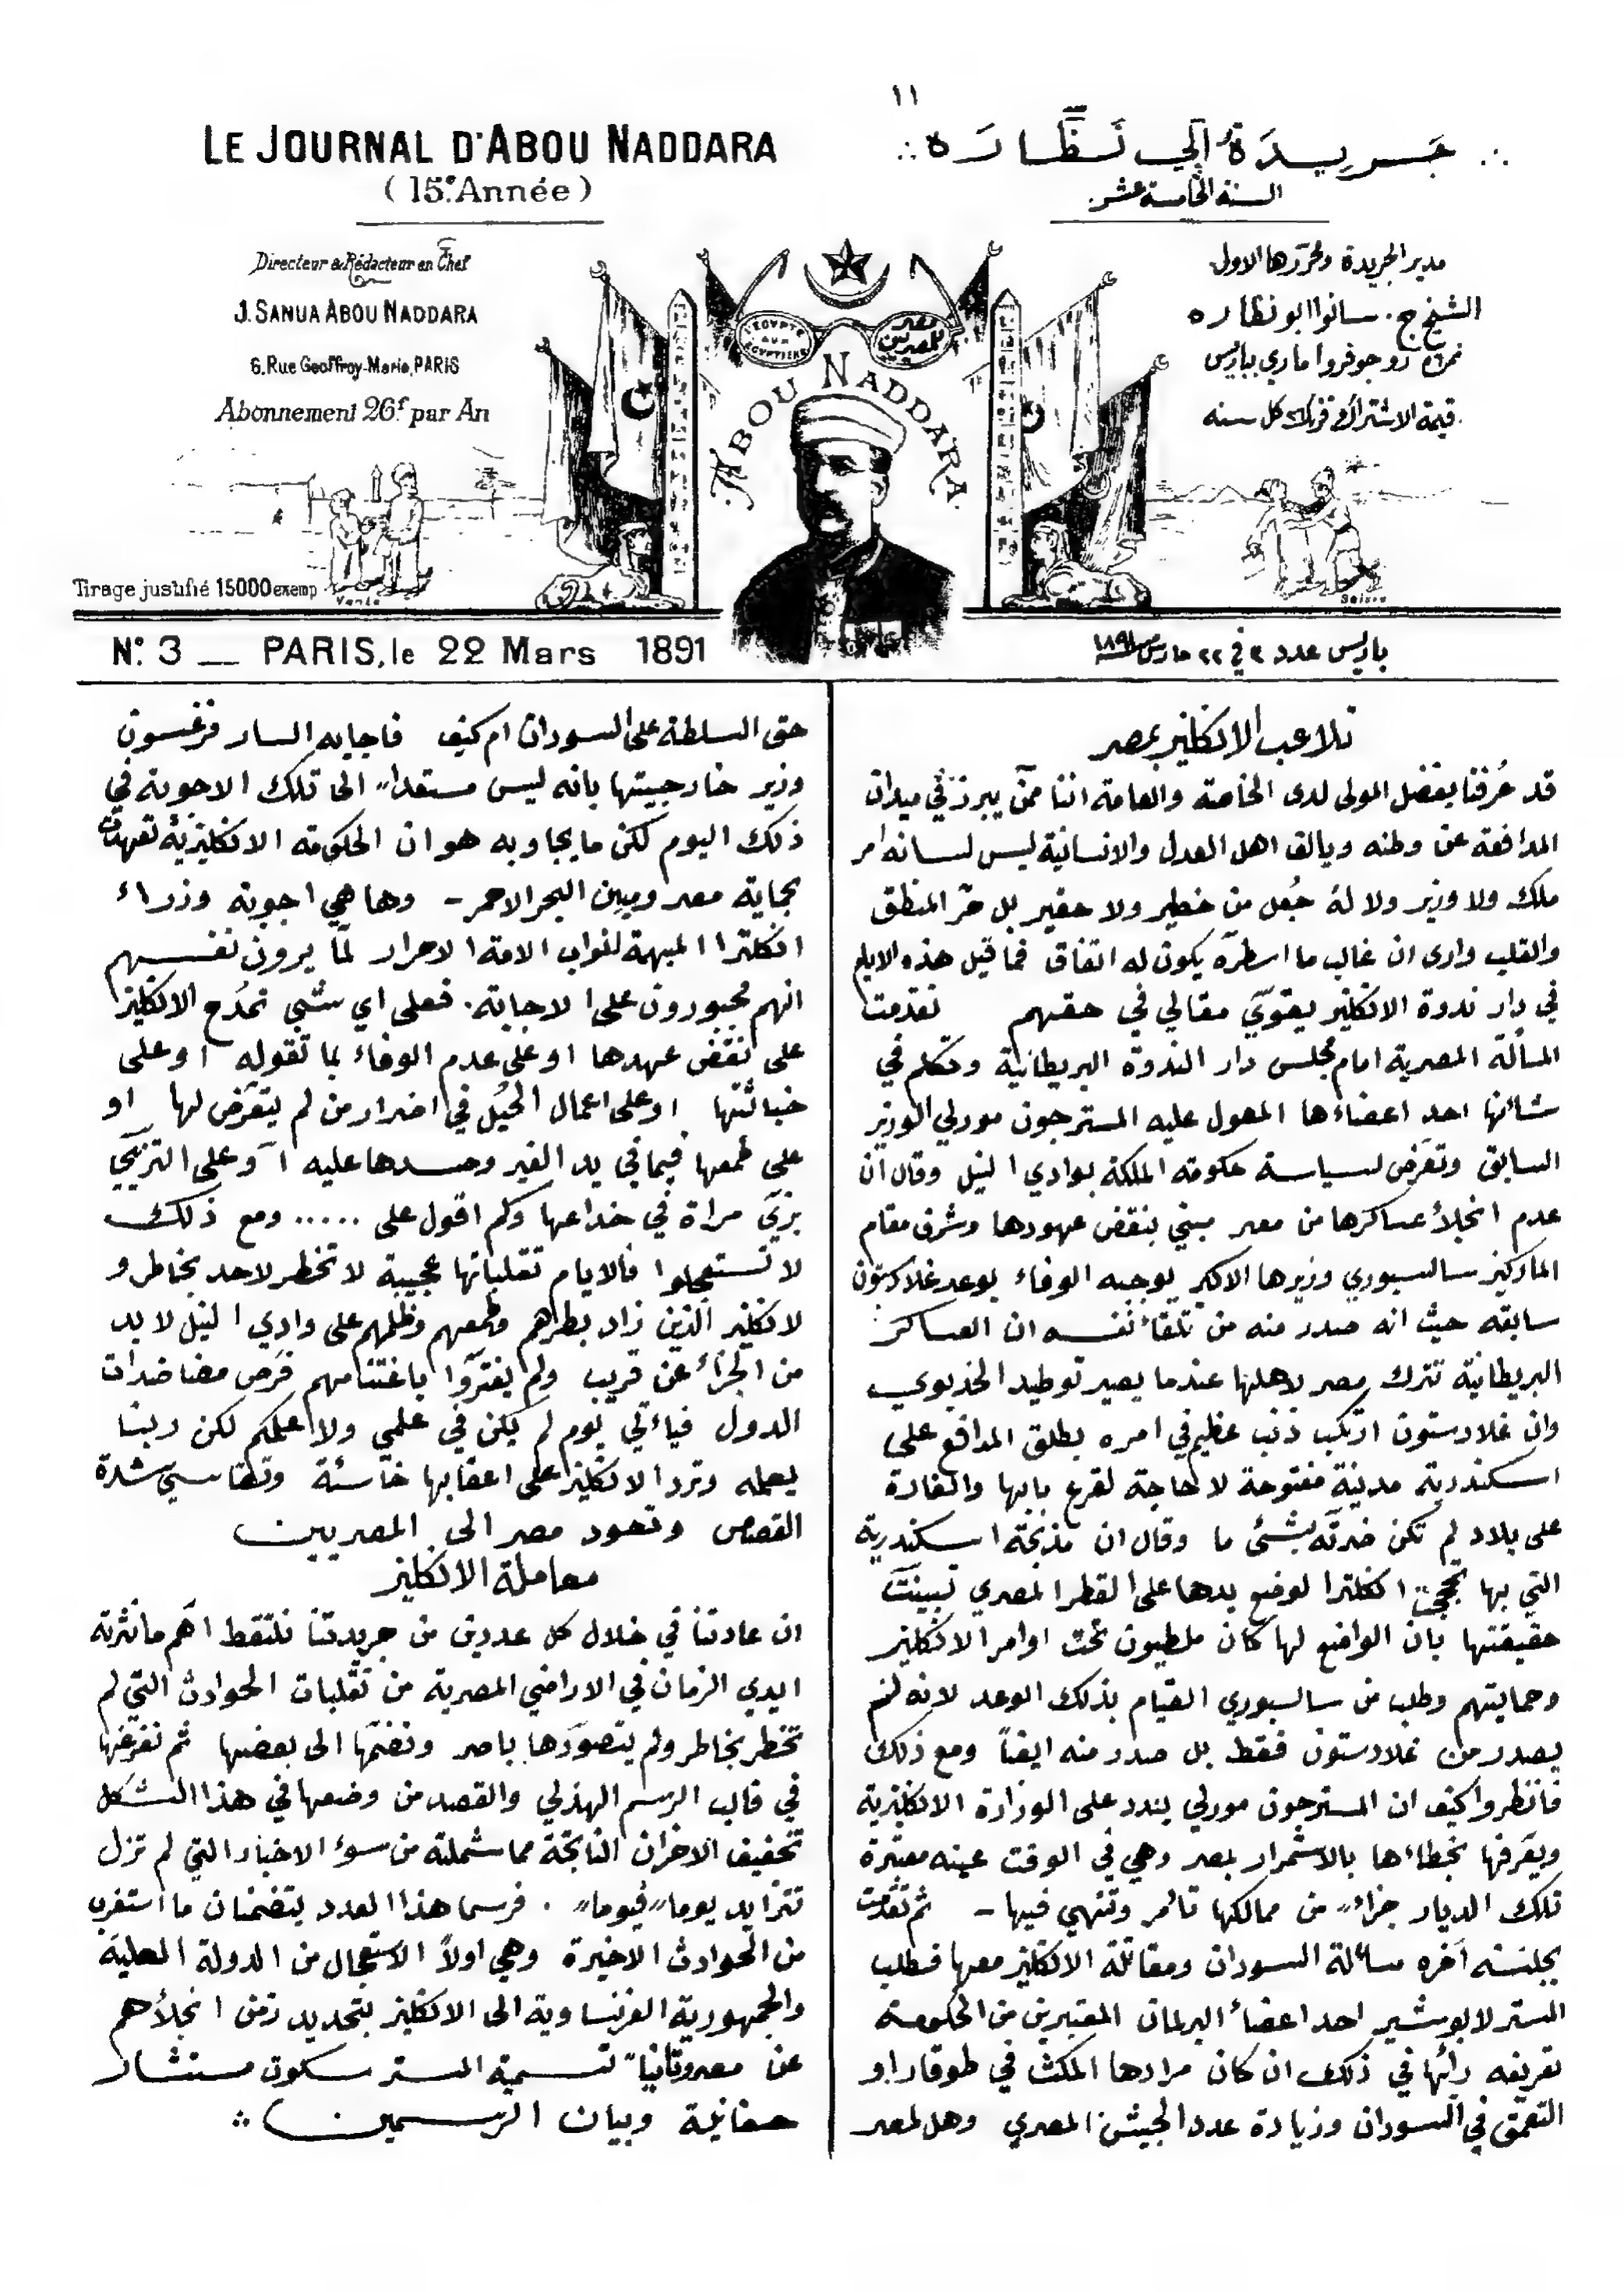 ١١
LE JOURNAL D'ABOU NADDARA
(15e. Année)
Directeur & Rédacteur en Chef
J. SANUA ABOU NADDARA
6. Rue Geoffroy-Marie, PARIS
Abonnement 26f. par An
Tirage justifié 15000 exemp
جَريدَةُ أَبي نَظَّارَه
السنة الخامسة عشر
مدير الجريدة ومحررها الاول
الشيخ ج. سانوا ابو نظاره
نمرة ٦ رو جوفروا ماري بباريس
قيمة الاشتراك ٢٦ فرنك كل سنه
L'EGYPTE AUX EGYPTIENS
مصر للمصريين
ABOU NADDARA
N°. 3 — PARIS, le 22 Mars 1891
باريس عدد ٣ في ٢٢ مارس سنة ١٨٩١
تلاعب الانكليز بمصر
قد عُرفنا بفضل المولى لدى الخاصة والعامة اننا ممّن يبرز في ميدان
المدافعة عن وطنه ويالف اهل العدل والانسانية ليس لسانه امر
ملك ولا وزير ولا لهُ جُعل من خطير ولا حقير بل حرّ المنطق
والقلب وارى ان غالب ما اسطرّه يكون له اتفاق فما قيل هذه الايام
في دار ندوة الانكليز يقوّي مقالي في حقهم تقدمت
المسألة المصرية امام مجلس دار الندوة البريطانية وتكلم في
شائنها احد اعضاءها المعول عليه المسترجون مورلي الوزير
السابق وتعرّض لسياسة حكومة الملكة بوادي النيل وقال ان
عدم انجلاء عساكرها من مصر مبني بنقض عهودها وشرف مقام
الماركيز سالسبوري وزيرها الاكبر يوجبه الوفاء بوعد غلادستون
سابقه حيث انه صدر منه من تلقاء نفسه ان العساكر
البريطانية تترك مصر لاهلها عندما يصير توطيد الخديوي
وان غلادستون ارتكب ذنب عظيم في امره بطلق المدافع على
اسكندرية مدينة مفتوحة لا حاجة لقرع بابها والغارة
على بلاد لم تكن ضرتّه بشئ ما وقال ان مذبحة اسكندرية
التي بها تحججت انكلترا لوضع يدها على القطر المصري تبينت
حقيقتها بان الواضع لها كان ملطيون تحت اوامر الانكليز
وحمايتهم وطلب من سالسبوري القيام بذلك الوعد لانه لم
يصدر من غلادستون فقط بل صدر منه ايضاً ومع ذلك
فانظروا كيف ان المسترجون مورلي يندد على الوزارة الانكليزية
ويعرّفها بخطاءها بالاستمرار بمصر وهي في الوقت عينه معتبرة
تلك الديار جزاء من ممالكها تامر وتنهي فيها - ثم تقدمت
بجلسة آخره مسألة السودان ومقاتلة الانكليز معها فطلب
المستر لابوشير احد اعضاء البرلمان المعتبرين من الحكومة
تعريفه رائها في ذلك ان كان مرادها المكث في طوقار او
التعمّق في السودان وزيادة عدد الجيش المصري وهل لمصر
حق السلطة على السودان ام كيف فاجابه السار فرغسون
وزير خارجيتها بانه ليس مستعداً الى تلك الاجوبة في
ذلك اليوم لكن ما يجاوبه هو ان الحكومة الانكليزية تعهدت
بحماية مصر ومين البحر الاحمر - وها هي اجوبة وزراء
انكلترا المبهمة لنواب الامة الاحرار لمّا يرون نفسهم
انهم مجبورون على الاجابة. فعلى اي شئ نمدح الانكليز
على نقض عهدها او على عدم الوفاء بما تقوله او على
خباثتها او على اعمال الحيَل في اضرار من لم يتعرّض لها او
على طمعها فيما في يد الغير وحسدها عليه او على التزيّي
بزيّ مراة في خداعها وكم اقول على ..... ومع ذلك
لا تستعجلوا فالايام تقلباتها عجيبة لا تخطر لاحد بخاطر و
لانكليز الذين زاد بطرهم وطمعهم وظلمهم على وادي النيل لا بد
من الجزاء عن قريب ولم يغترّوا باغتنامهم فرص مضاضدات
الدول فياءتي يوم لم يكن في علمي ولا علمكم لكن ربنا
يعمله وترد الانكليز على اعقابها خاسئة وتقاسي شدة
القصاص وتعود مصر الى المصريين
معاملة الانكليز
ان عادتنا في خلال كل عددين من جريدتنا نلتقط اهم ما نثرته
ايدي الزمان في الاراضي المصرية من تقلبات الحوادث التي لم
تخطر بخاطر ولم يتصوّرها باصر ونضمّها الى بعضها ثم نفرغها
في قالب الرسم الهذلي والقصد من وضعها في هذا الشكل
تخفيف الاحزان الناتجة مما شملته من سوء الاخبار التي لم تزل
تتزايد يوماً فيوماً. فرسما هذا العدد يتضمنان ما استغرب
من الحوادث الاخيرة وهي اولاً الاستعجال من الدولة العلية
والجمهورية الفرنساوية الى الانكليز بتحديد زمن انجلاءهم
عن مصر وثانياً تسمية المستر سكوت مستشار
حقانية وبيان الرسمين